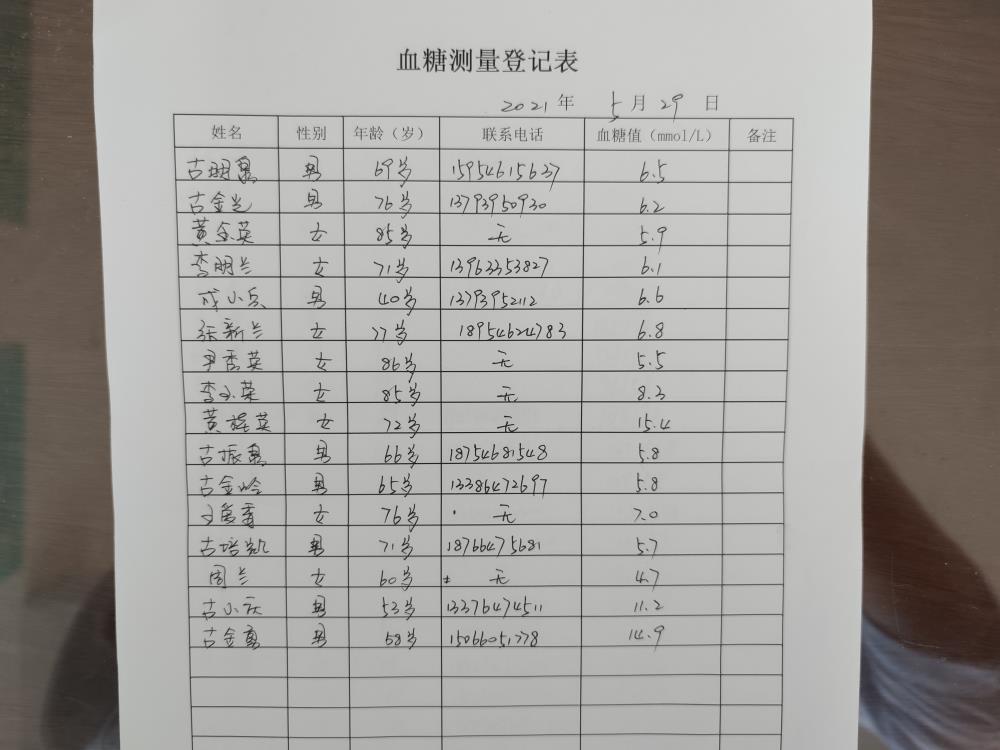 血糖测量登记表
2021 年 5 月 29 日
姓名 性别 年龄（岁） 联系电话 血糖值（mmol/L） 备注
古明 男 69岁 15954615637 6.5
古金光 男 76岁 13793950930 6.2
黄金英 女 85岁 无 5.9
李明兰 女 71岁 13963353827 6.1
成小兵 男 40岁 13793952112 6.6
张新兰 女 77岁 18954624783 6.8
尹秀英 女 86岁 无 5.5
李小荣 女 85岁 无 8.3
黄桂英 女 72岁 无 15.4
古振 男 66岁 18754681548 5.8
古金岭 男 65岁 13386472697 5.8
女 76岁 无 7.0
古培凯 男 71岁 18766475681 5.7
周兰 女 60岁 无 4.7
古小庆 男 53岁 13376474511 11.2
古金勇 男 58岁 15066051778 14.9